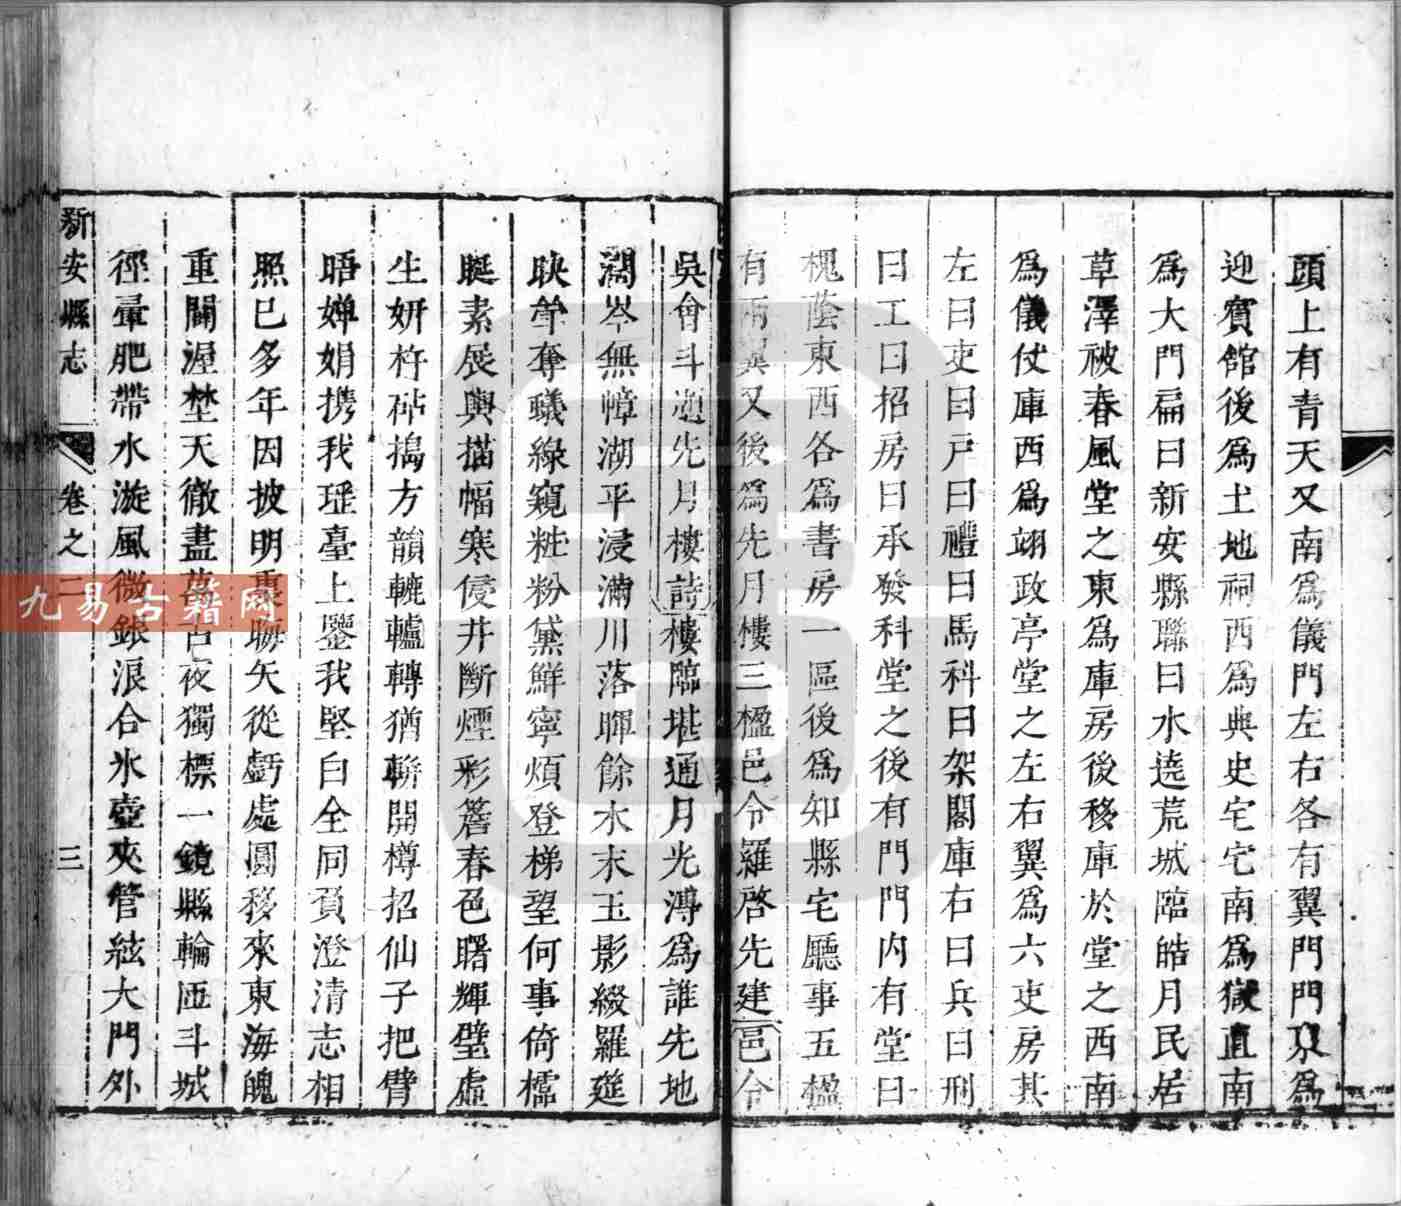 頭上有青天又南爲儀門左右各有翼門門東爲
迎賓館後爲土地祠西爲典史宅宅南爲獄直南
爲大門扁曰新安縣聯曰水遶荒城臨皓月民居
草澤被春風堂之東爲庫房後移庫於堂之西南
爲儀仗庫西爲翊政亭堂之左右翼爲六吏房其
左曰吏曰戸曰禮曰馬科曰架閣庫右曰兵曰刑
曰工曰招房曰承發科堂之後有門門内有堂曰
槐蔭東西各爲書房一區後爲知縣宅廳事五楹
有兩翼又後爲先月樓三楹邑令羅啓先建邑令
吳會斗遡先月樓詩樓臨堪通月光溥爲誰先地
濶岑無嶂湖平浸滿川落暉餘水末玉影綴羅筵
映簟奪曦綠窺粧粉黛鮮寧煩登梯望何事倚檽
眠素展輿描幅寒侵井斷煙彩簷春色曙輝壁虛
生妍杵砧搗方韻轆轤轉猶聯開樽招仙子把臂
晤嬋娟携我瑶臺上鑒我堅白全同負澄清志相
照已多年因披明裏聯矢從虧處圓移來東海魄
重關渥埜天徹盡萬古夜獨標一鏡縣輪匝斗城
徑暈肥帶水漩風微浪合氷壺夾管絃大門外
新安縣志 卷之二 三
九易古籍网